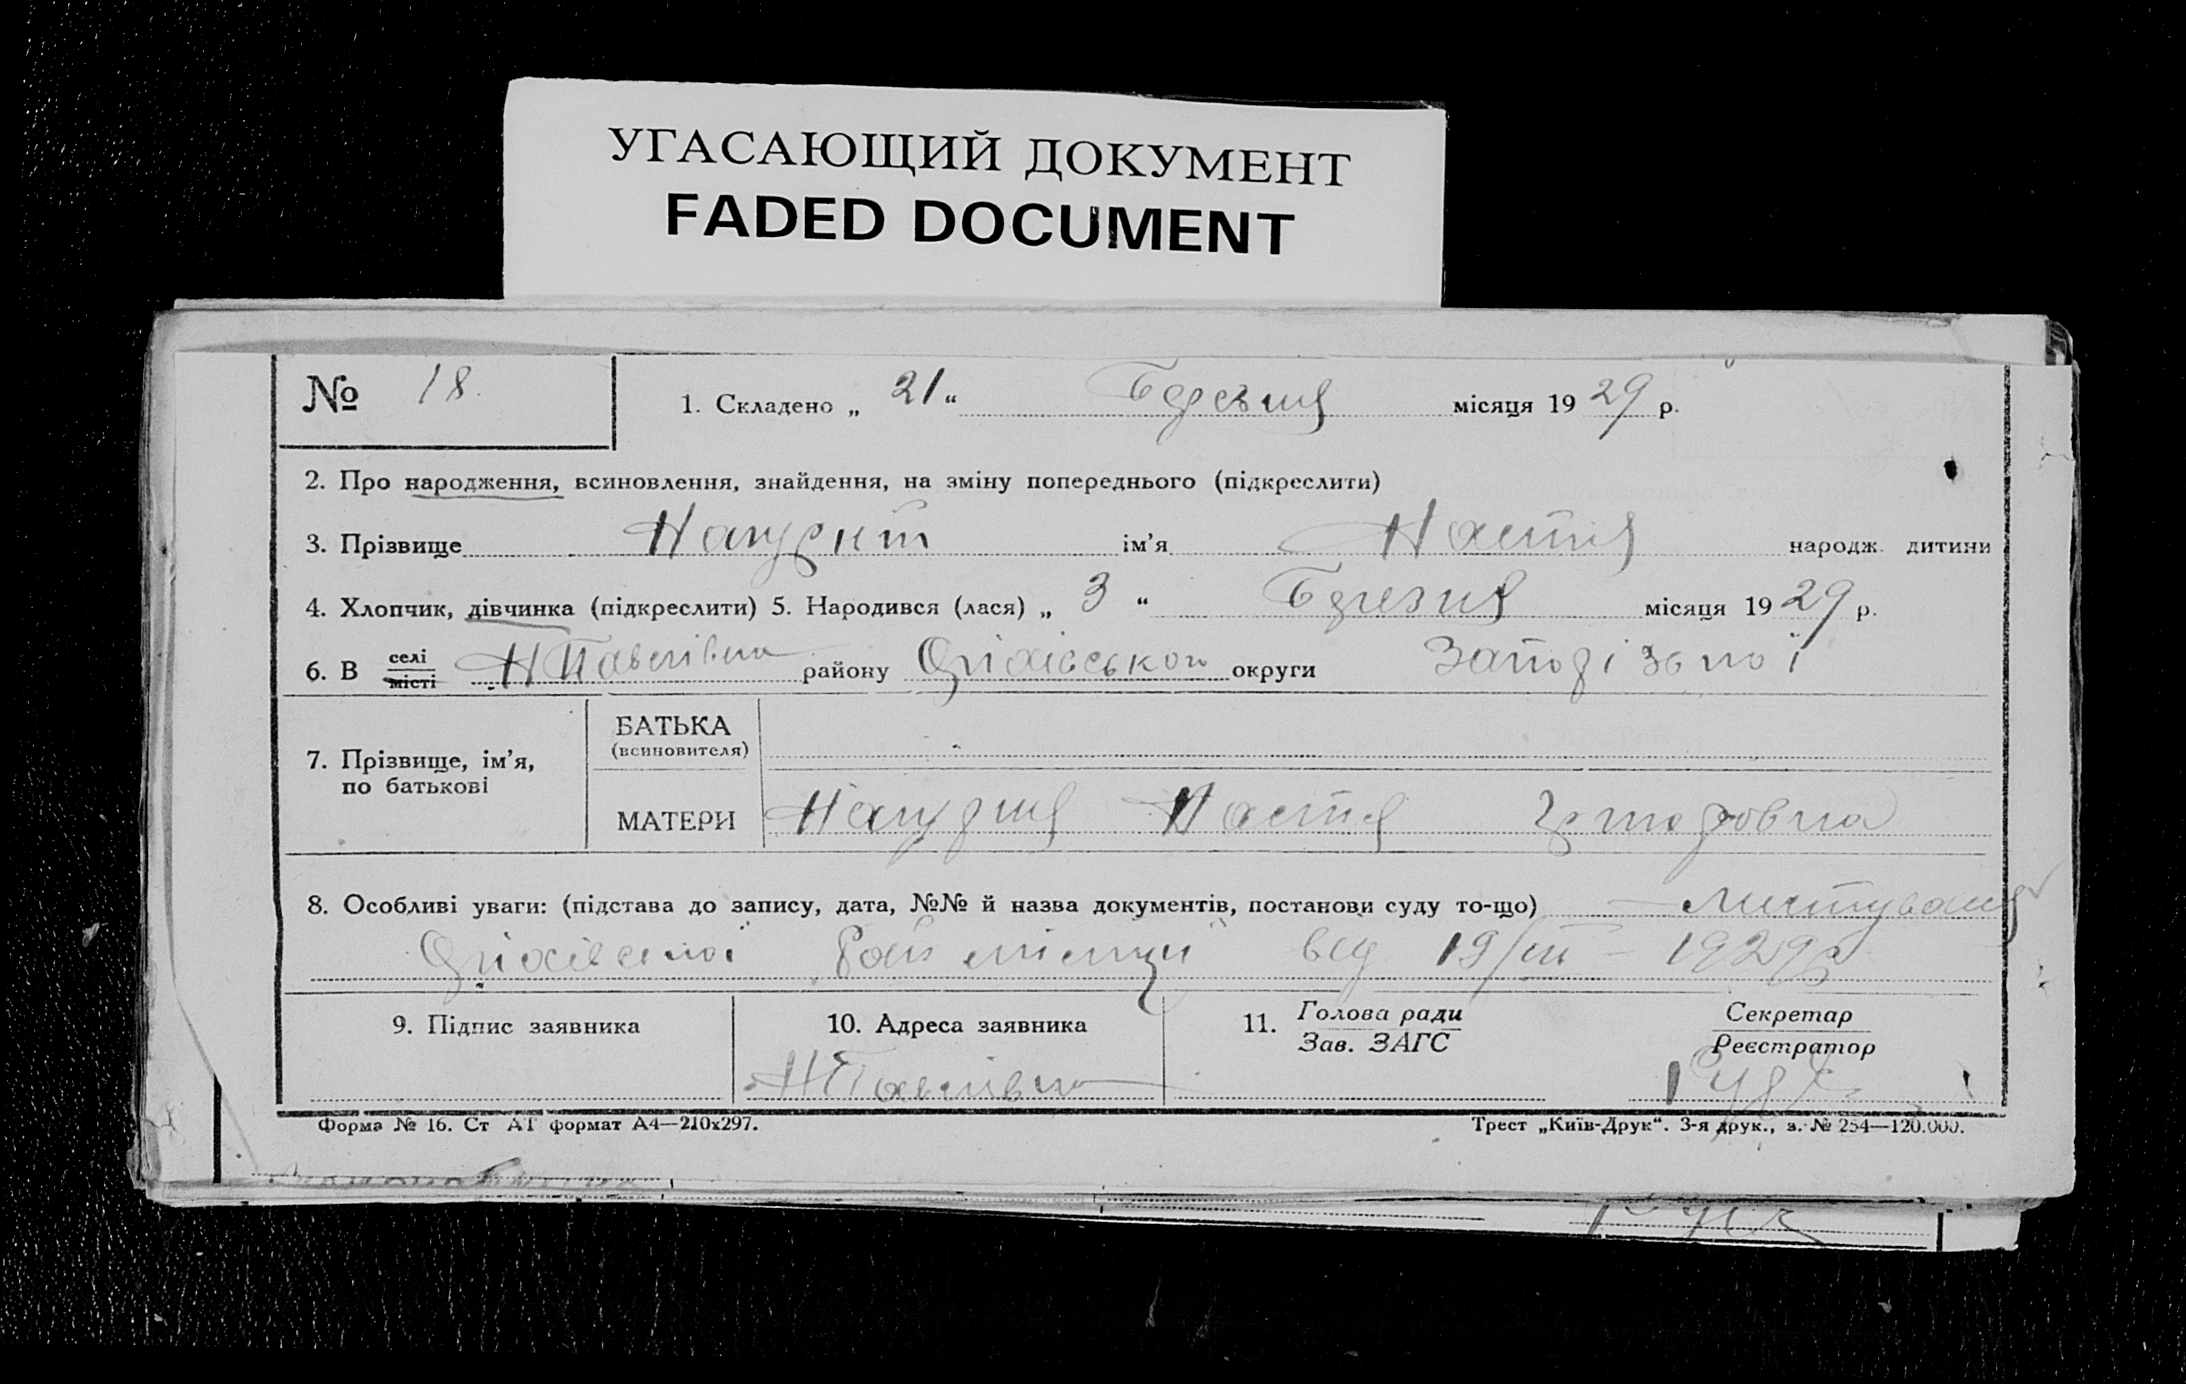 УГАСАЮЩИЙ ДОКУМЕНТ
FADED DOCUMENT
№ 18. 1. Складено „ 21 “ Березня місяця 1929 р.
2. Про народження, всиновлення, знайдення, на зміну попереднього (підкреслити)
3. Прізвище ім’я Настя народж. дитини
4. Хлопчик, дівчинка (підкреслити) 5. Народився (лася) „ 3 “ Березня місяця 1929 р.
6. В селі місті Н Павлівка району Оріхівського округи Запорізької
7. Прізвище, ім’я, по батькові
БАТЬКА
(всиновителя)
МАТЕРИ Настя
8. Особливі уваги: (підстава до запису, дата, №№ й назва документів, постанови суду то-що) листування
Оріхівської Рай міліції від 19/III – 1929р
9. Підпис заявника 10. Адреса заявника 11. Голова ради Секретар
Зав. ЗАГС Реєстратор
Н Павлівка
Форма № 16. Ст АТ формат А4—210х297. Трест „Київ-Друк“. 3-я друк., з. № 254—120.000.